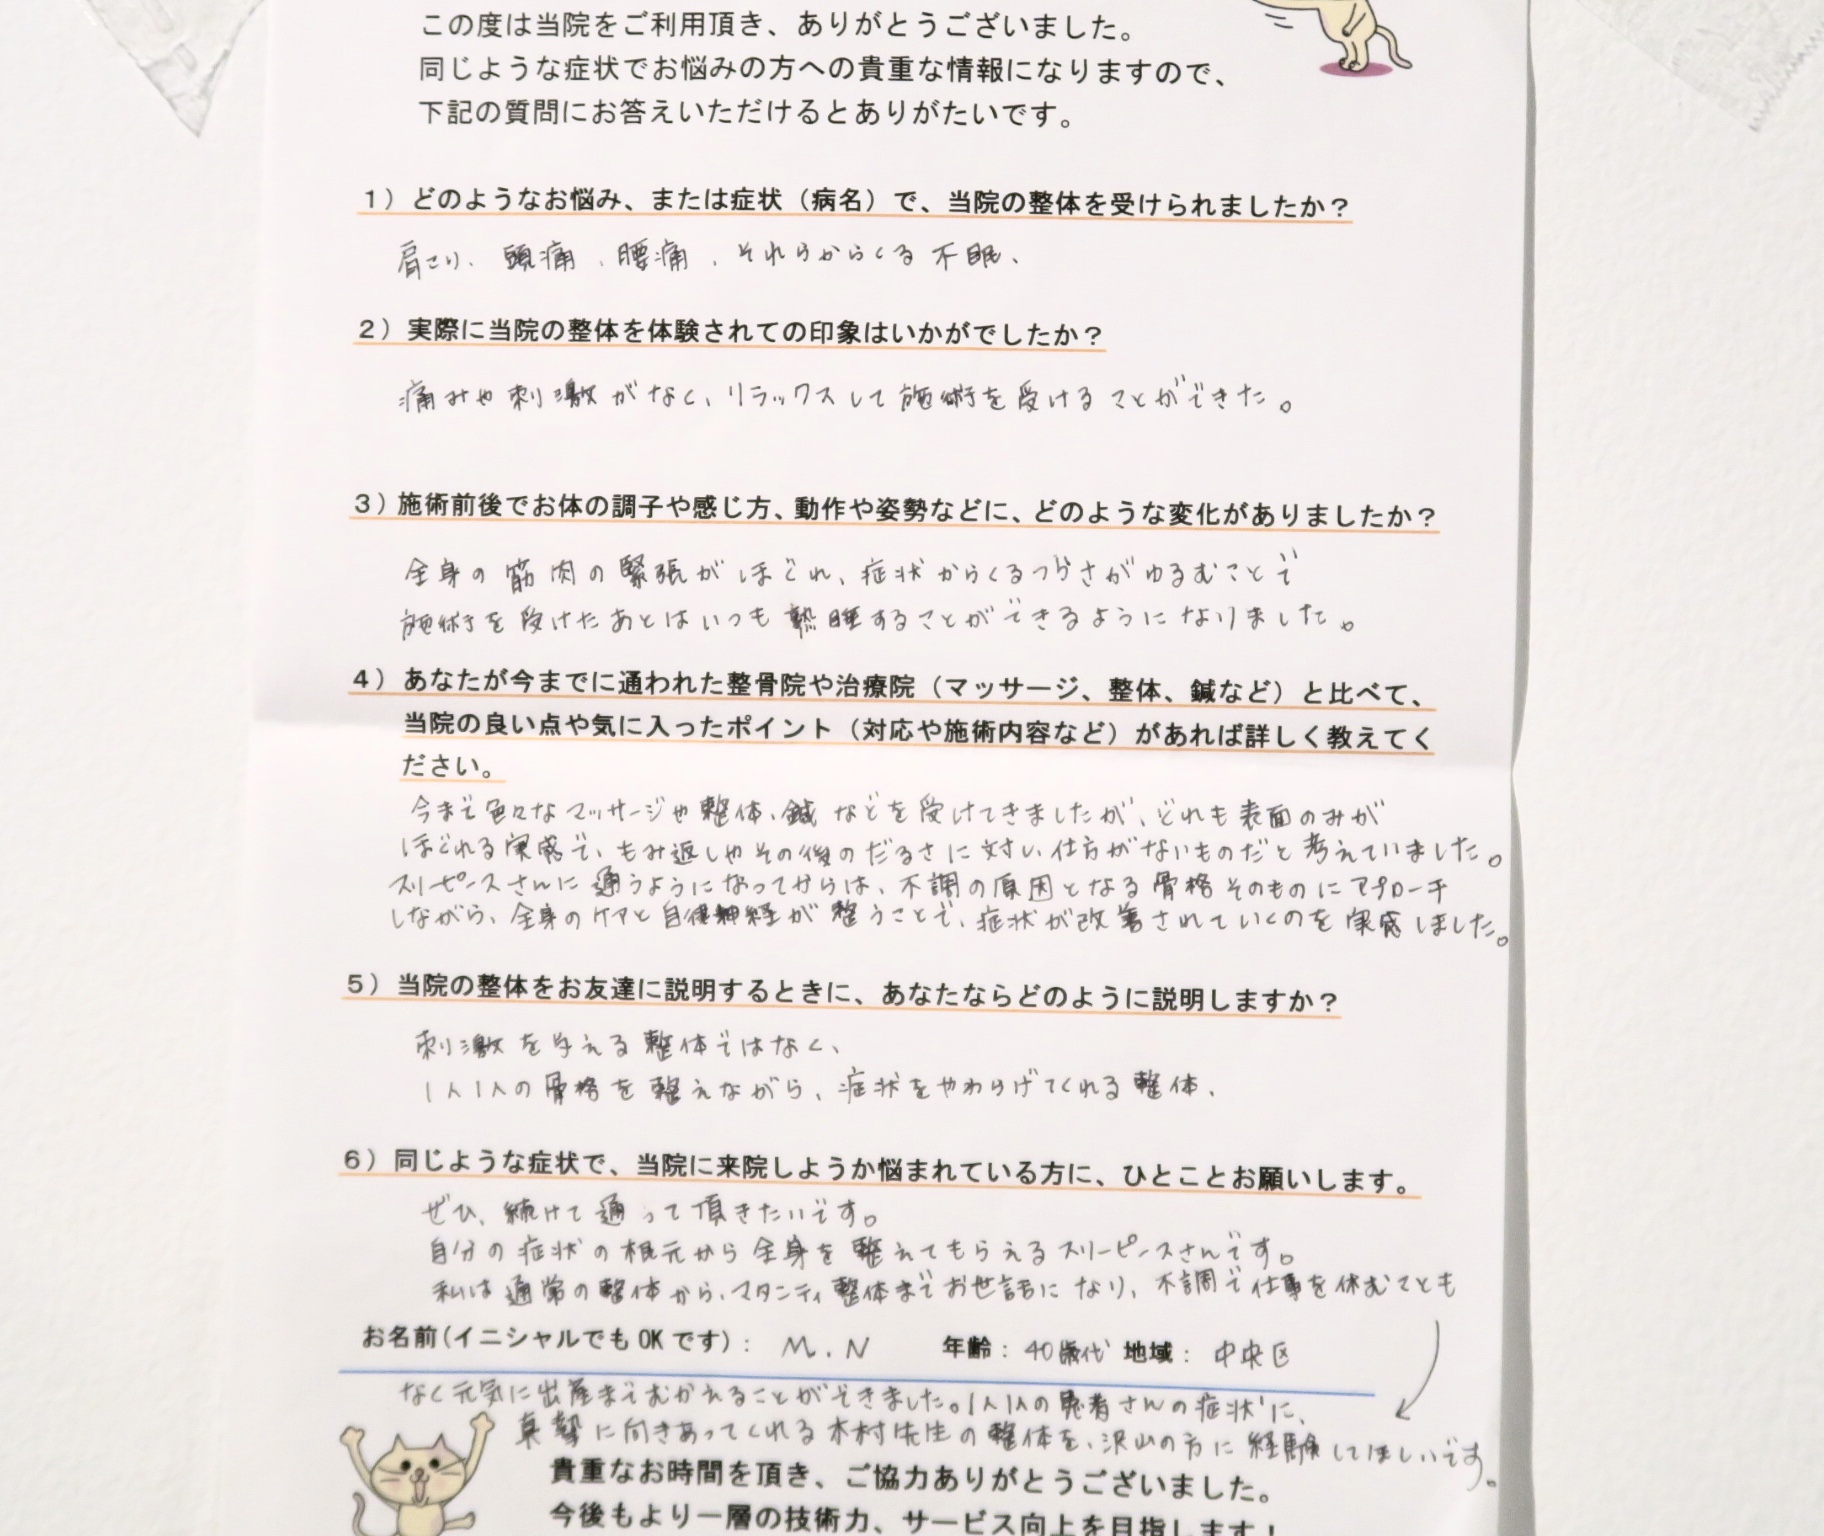 この度は当院をご利用頂き、ありがとうございました。
同じような症状でお悩みの方への貴重な情報になりますので、
下記の質問にお答えいただけるとありがたいです。
1）どのようなお悩み、または症状（病名）で、当院の整体を受けられましたか？
肩こり、頭痛、腰痛、それらからくる不眠、
2）実際に当院の整体を体験されての印象はいかがでしたか？
痛みや刺激がなく、リラックスして施術を受けることができた。
3）施術前後でお体の調子や感じ方、動作や姿勢などに、どのような変化がありましたか？
全身の筋肉の緊張がほぐれ、症状からくるつらさがゆるむことで
施術を受けたあとはいつも熟睡することができるようになりました。
4）あなたが今までに通われた整骨院や治療院（マッサージ、整体、鍼など）と比べて、
当院の良い点や気に入ったポイント（対応や施術内容など）があれば詳しく教えてく
ださい。
今まで色々なマッサージや整体、鍼などを受けてきましたが、どれも表面のみが
ほぐれる実感で、もみ返しやその後のだるさに対し、仕方がないものだと考えていました。
スリーピースさんに通うようになってからは、不調の原因となる骨格そのものにアプローチ
しながら、全身のケアと自律神経が整うことで、症状が改善されていくのを実感しました。
5）当院の整体をお友達に説明するときに、あなたならどのように説明しますか？
刺激を与える整体ではなく、
1人1人の骨格を整えながら、症状をやわらげてくれる整体、
6）同じような症状で、当院に来院しようか悩まれている方に、ひとことお願いします。
ぜひ、続けて通って頂きたいです。
自分の症状の根元から全身を整えてもらえるスリーピースさんです。
私は通常の整体から、マタニティ整体までお世話になり、不調で仕事を休むことも
お名前(イニシャルでもOKです)： M.N 年齢：40歳代 地域：中央区
なく元気に出産までむかえることができました。1人1人の患者さんの症状に、
真摯に向きあってくれる木村先生の整体を、沢山の方に経験してほしいです。
貴重なお時間を頂き、ご協力ありがとうございました。
今後もより一層の技術力、サービス向上を目指します！